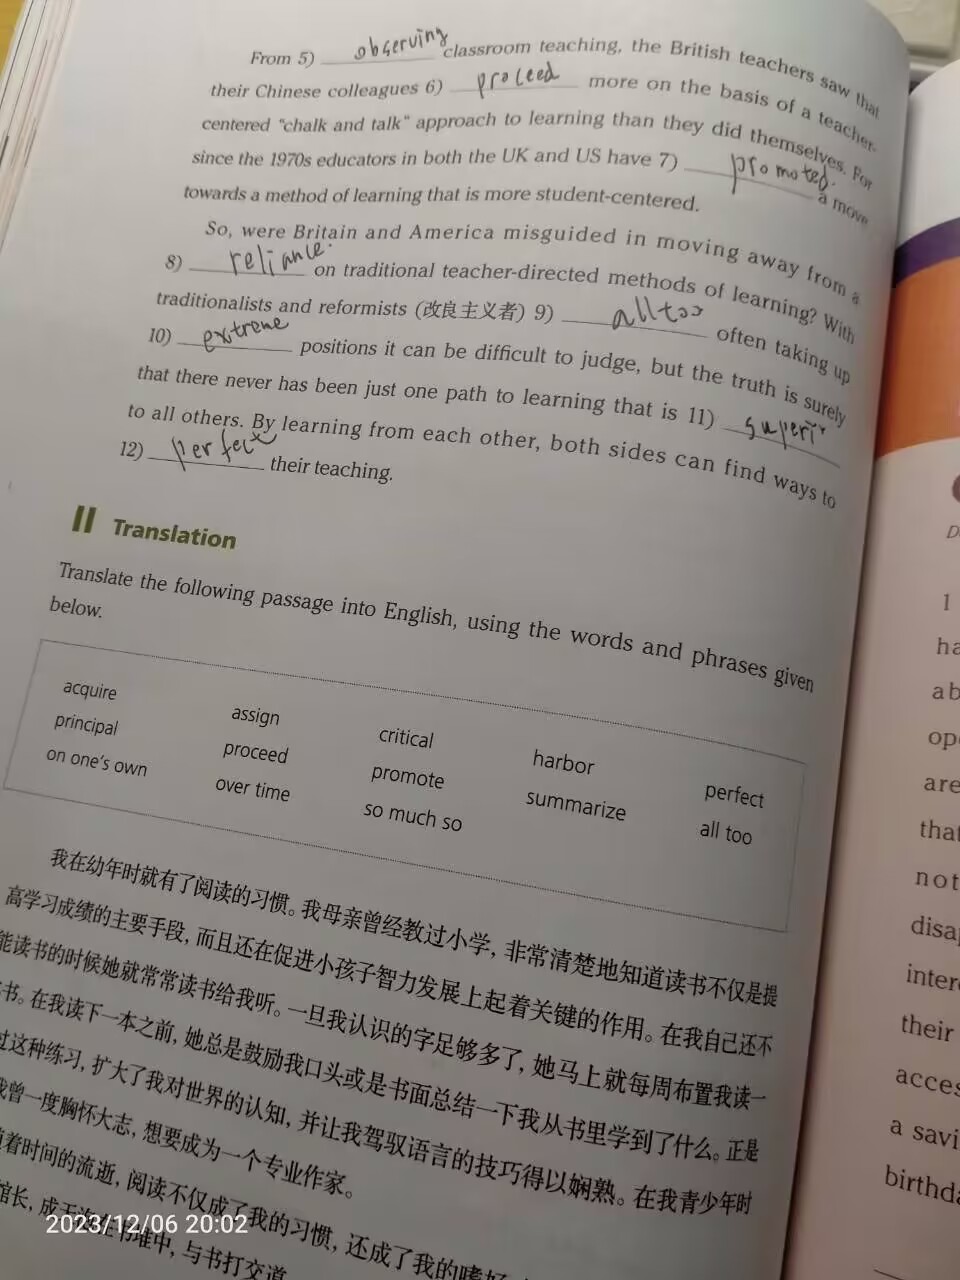 From 5) observing classroom teaching, the British teachers saw that
their Chinese colleagues 6) proceed more on the basis of a teacher-
centered "chalk and talk" approach to learning than they did themselves. For
since the 1970s educators in both the UK and US have 7) promoted. a move
towards a method of learning that is more student-centered.
So, were Britain and America misguided in moving away from a
8) reliance. on traditional teacher-directed methods of learning? With
traditionalists and reformists (改良主义者) 9) all too often taking up
10) extreme positions it can be difficult to judge, but the truth is surely
that there never has been just one path to learning that is 11)
to all others. By learning from each other, both sides can find ways to
12) perfect their teaching.
II Translation
Translate the following passage into English, using the words and phrases given
below.
acquire assign critical harbor perfect
principal proceed promote summarize all too
on one's own over time so much so
我在幼年时就有了阅读的习惯。我母亲曾经教过小学，非常清楚地知道读书不仅是提
高学习成绩的主要手段，而且还在促进小孩子智力发展上起着关键的作用。在我自己还不
能读书的时候她就常常读书给我听。一旦我认识的字足够多了，她马上就每周布置我读一
书。在我读下一本之前，她总是鼓励我口头或是书面总结一下我从书里学到了什么。正是
过这种练习，扩大了我对世界的认知，并让我驾驭语言的技巧得以娴熟。在我青少年时
我曾一度胸怀大志，想要成为一个专业作家。
随着时间的流逝，阅读不仅成了我的习惯，还成了我的嗜好
馆长，成天泡在书堆中，与书打交道
2023/12/06 20:02
1
ha
ab
op
are
that
not
disap
inter
their
acces
a savi
birthda